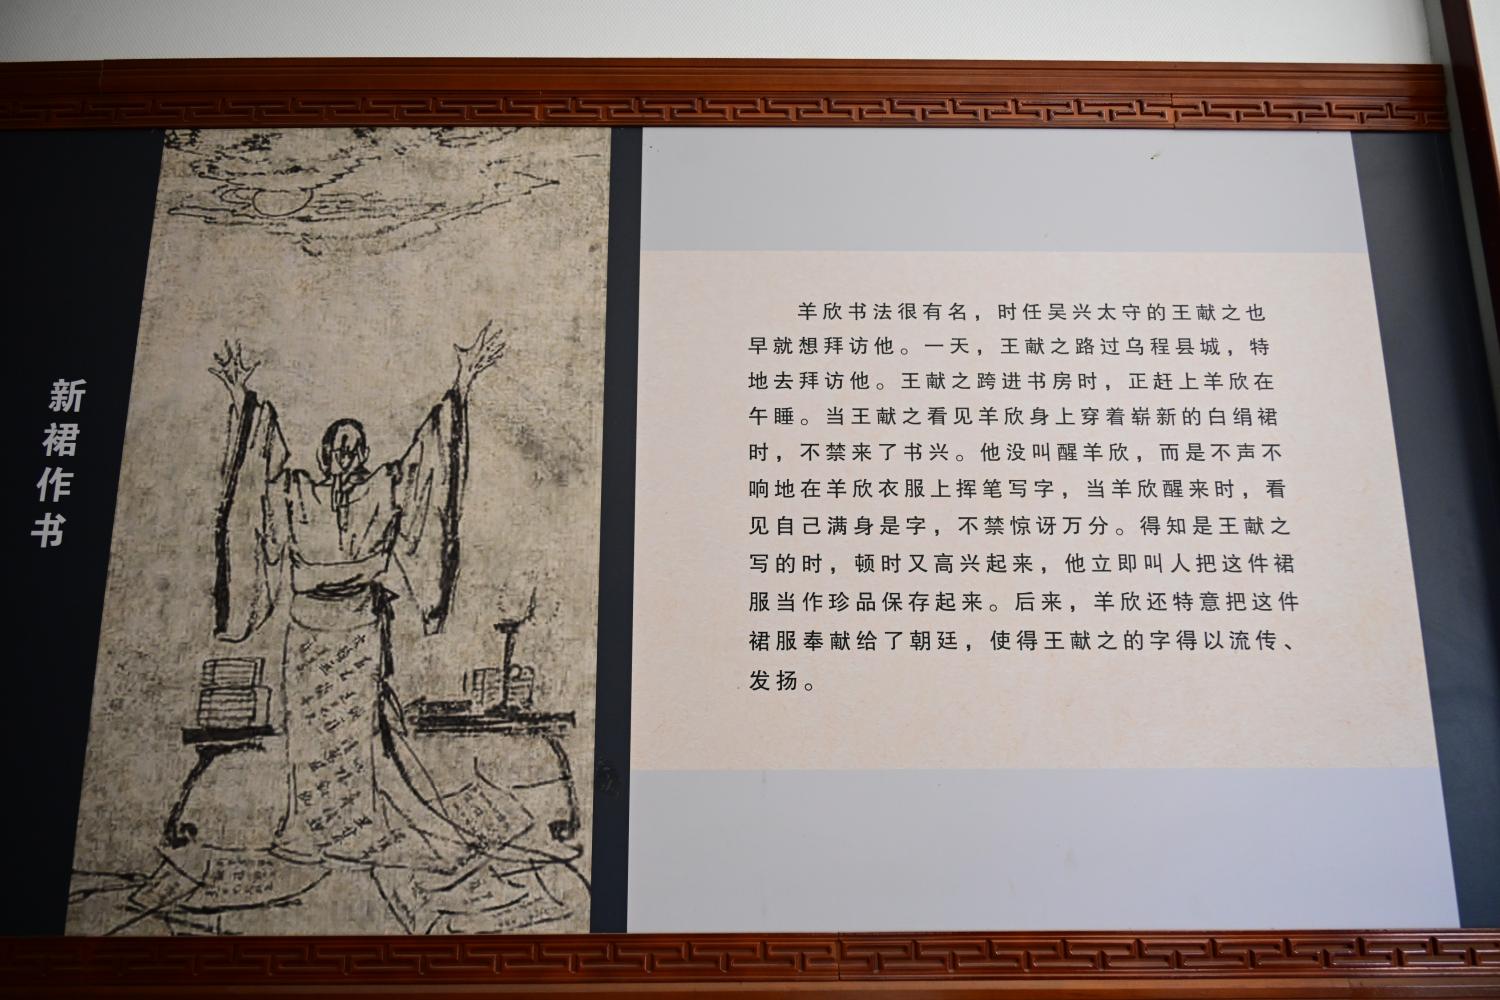 新裙作书
羊欣书法很有名，时任吴兴太守的王献之也
早就想拜访他。一天，王献之路过乌程县城，特
地去拜访他。王献之跨进书房时，正赶上羊欣在
午睡。当王献之看见羊欣身上穿着崭新的白绢裙
时，不禁来了书兴。他没叫醒羊欣，而是不声不
响地在羊欣衣服上挥笔写字，当羊欣醒来时，看
见自己满身是字，不禁惊讶万分。得知是王献之
写的时，顿时又高兴起来，他立即叫人把这件裙
服当作珍品保存起来。后来，羊欣还特意把这件
裙服奉献给了朝廷，使得王献之的字得以流传、
发扬。